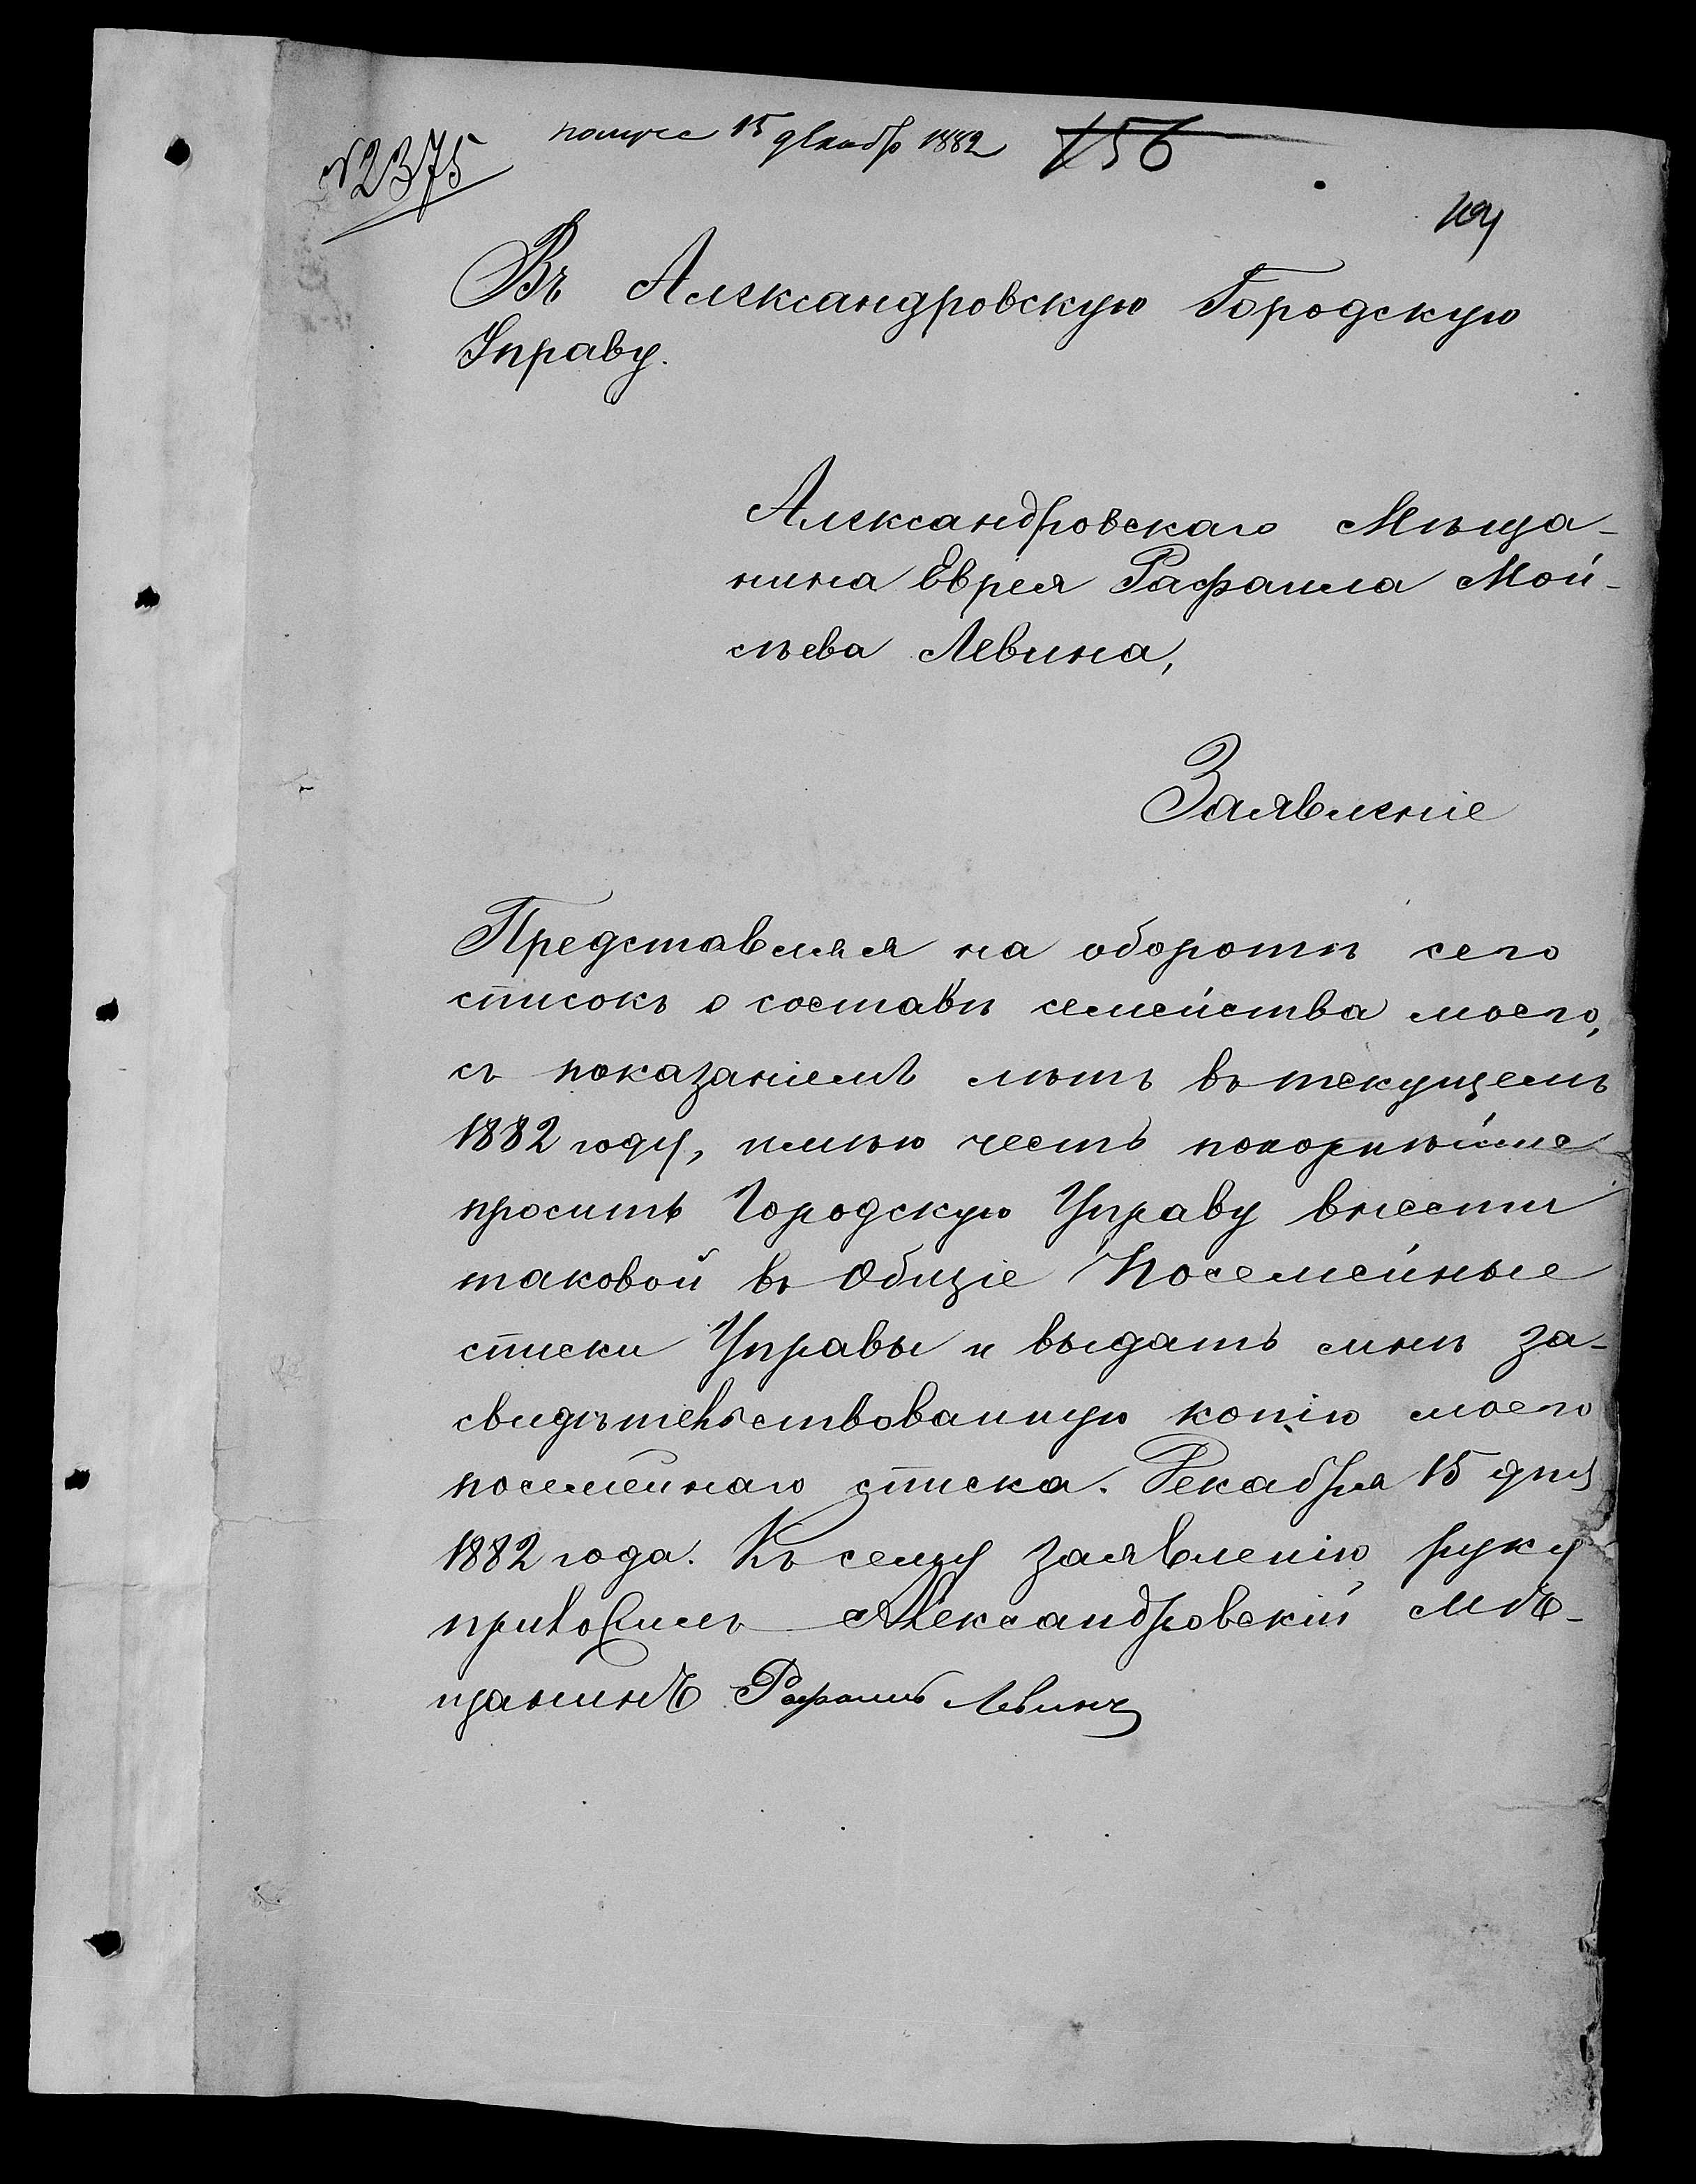 №2375
получе 15 декабр 1882
156
Въ Александровскую Городскую
Управу.
Александровскаго Мѣща-
нина Еврея Рафаила Мой-
сѣева Левина,
Заявленіе
Представляя на оборотѣ сего
списокъ о составѣ семейства моего,
съ показаніемъ лѣтъ въ текущемъ
1882 году, имѣю честь покорнѣйше
просить Городскую Управу внести
таковой въ Общіе Посемейные
списки Управы и выдать мнѣ за-
свидѣтельствованную копію моего
посемейнаго списка. Декабря 15 дня
1882 года. Къ сему заявленію руку
приложилъ Александровскій мѣ-
щанинъ Рафаилъ Левинъ